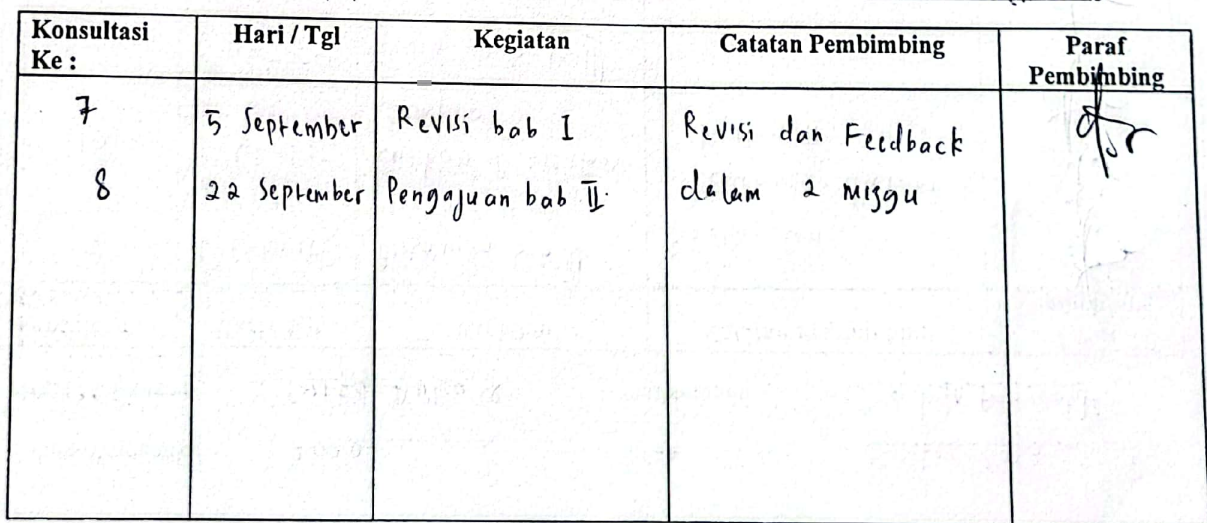 Konsultasi Ke : Hari / Tgl Kegiatan Catatan Pembimbing Paraf Pembimbing
7 5 September Revisi bab I Revisi dan Feedback
8 22 September Pengajuan bab II dalam 2 misgu